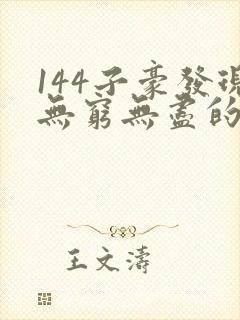 144子豪發現
無窮無盡的
王文濤